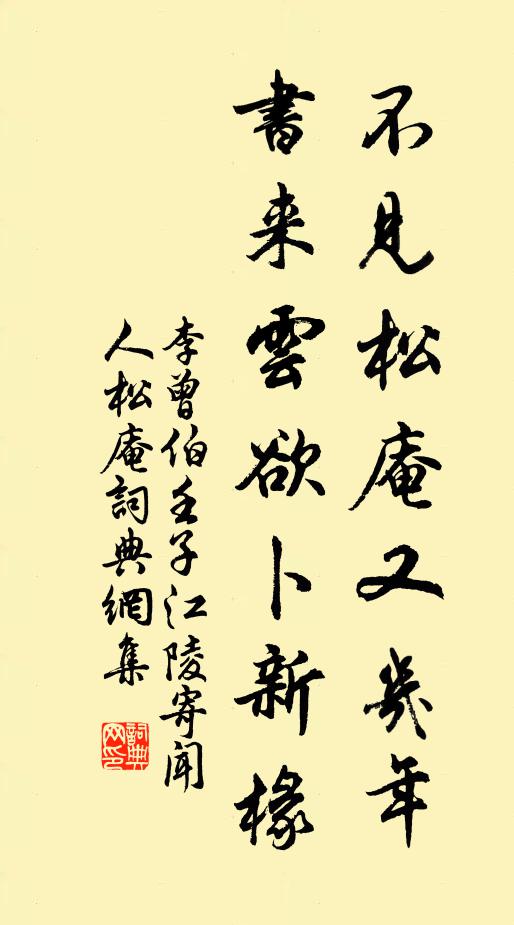 不見松庵又幾年
書来雲欲卜新椽
李曾伯壬子江陵寄聞
人松庵詞典網集
詞典网印